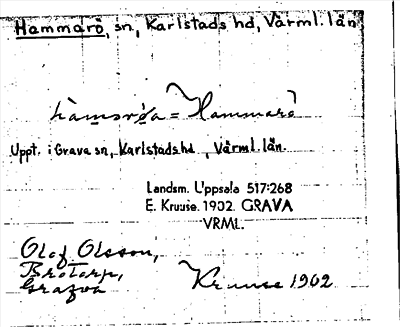 Hammarö, sn, Karlstads hd, Värml. län
= Hammarö
Uppt. i Grava sn, Karlstads hd, Värml. län.
Landsm. Uppsala 517:268
E. Kruuse. 1902. GRAVA
VRML.
Olof Olsson,
Brotorp,
Grafva
Kruuse 1902